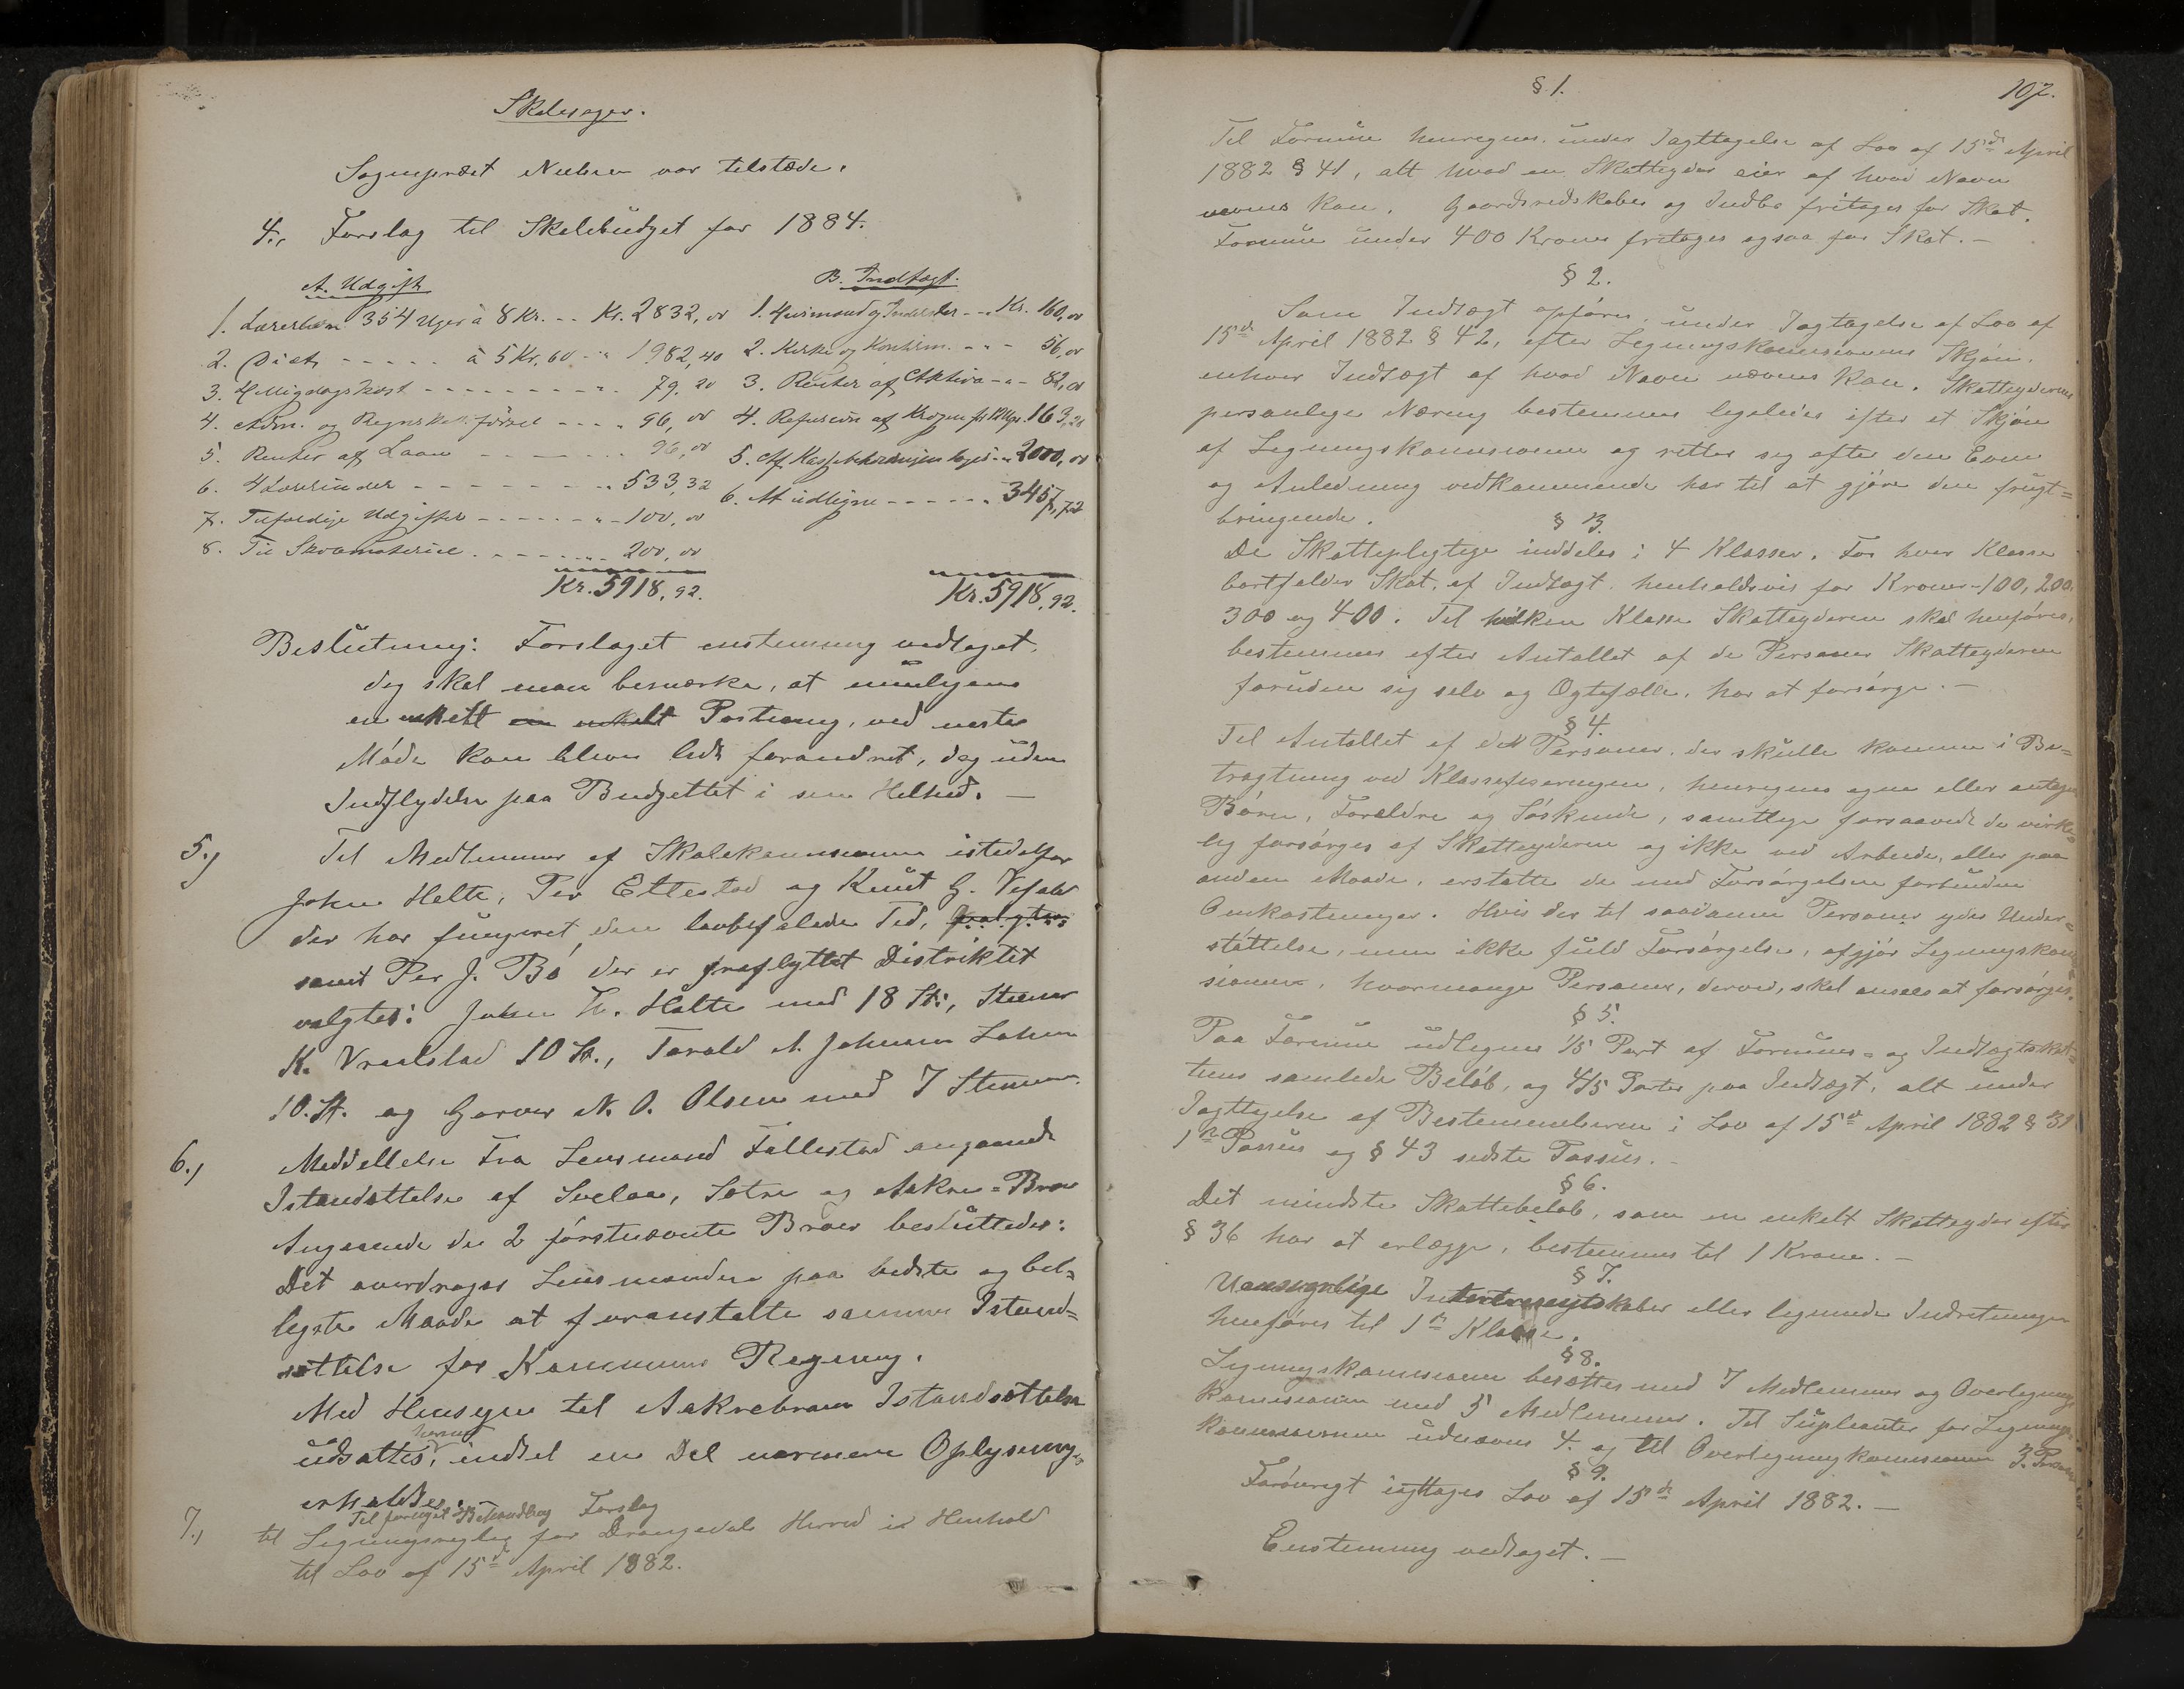 Skolesager.
Sogneprest Nielsen var tilstæde.
4., Forslag til Skolebüdget for 1884.
A. Udgift
1. Lærerløn 354 Uger à 8 Kr. -- Kr. 2832,00
2. Diæt - - - - - à 5 Kr. 60 - " 1982,40
3. Helligdagskost - - - - - - - - " 79,20
4. Adm. og Regnskabsförsel - - - - 96,00
5. Renter af Laan - - - - - - - 96,00
6. 4 Lærerinder - - - - - - - " 533,32
7. Tilfældige Udgifter - - - - - " 100,00
8. Til Skolemateriel - - - - - 200,00
Kr. 5918,92.
B. Indtægt.
1. Husmænd og Inderster - - Kr. 160,00
2. Kirke og Konfirm. - - - 56,00
3. Renter af Aktiva - " - 82,00
4. Refusion af 163,20
5. Af Kassebeholdningen tages - " 2000,00
6. At udligne - - - - - - 3457,72
Kr. 5918,92.
Beslütning: Forslaget enstemmig vedtaget.
dog skal man bemærke, at muligens
en enkelt en enkelt Postering, ved næste
Möde kan blive lidt forandret, dog uden
Indflydelse paa Budgettet i sin Helhed. —
5., Til Medlemmer af Skolekommissionen istedetfor
John Helte, Per Ettestad og Knüt G. Vefald
der har füngeret den lovbefalede Tid,
samt Per J. Bö der er fraflyttet Distriktet
valgtes: John H. Halte med 18 St:, Steener
K. Vraalstad 10 St., Torald A. Johnsen
10. St. og Garver N. O. Olsen med 7 Stemmer.
6., Meddellelse fra Lensmand Tallestad angaaende
Istandsættelse af Soelaa, Sætre og Aakre = Bro
Angaaende de 2 förstnævnte Broer beslüttedes:
Det overdrages Lensmanden paa bedste og bil=
ligste Maade at foranstalte samme Istand=
sættelse for Kommunens Regning.
Med Hensyn til Aakrebroens Istandsættelse
üdsattes hermed, indtil en Del nærmere Oplysning
erholdes. —
7., Til foreløpet Behandling Forslag
til Ligningsregler for Drangedals Herred i Henhold
til Lov af 15de April 1882.
107.
§ 1.
Til Formüe henregnes, under Iagttagelse af Lov af 15de April
1882 § 41, alt hvad en Skatteyder eier af hvad Navn
nævnes kan. Gaardsredskaber og Indbo fritages for Skat.
Formüe under 400 Kroner fritages ogsaa for Skat. —
§ 2.
Som Indtægt opføres, under Iagtagelse af Lov af
15de April 1882 § 42, efter Ligningskommissionens Skjön,
enhver Indtægt af hvad Navn nævnes kan. Skatteyderens
personlige Næring bestemmes ligeledes efter et Skjön
af Ligningskommissionen og retter sig efter den Evne
og Anledning vedkommende har til at gjöre den frügt=
bringende.
§ 3.
De Skattepligtige inddeles i 4 Klasser. For hver Klasse
bortfalder Skat af Indtægt henholdsvis for Kroner - 100, 200,
300 og 400. Til hvilken Klasse Skatteyderen skal henføres,
bestemmes efter Antallet af de Personer Skatteyderen
foruden sig selv og Ægtefælle, har at forsörge. —
§ 4.
Til Antallet af de Personer, der skülle komme i Be=
tragtning ved Klassefiseringen, henregnes egne eller antagne
Börn, Forældre og Söskende, samtlige forsaavidt de virke=
lig forsörges af Skatteyderen og ikke ved Arbeide, eller paa
anden Maade, erstatte de med Forsörgelsen forbundne
Omkostninger. Hvis der til saadanne Personer ydes Under=
støttelse, men ikke fuld Forsörgelse, afgjör Ligningskom=
sionen, hvormange Personer, derved, skal ansees at forsörges.
§ 5.
Paa Formüe üdlignes 1/5 Part af Formües= og Indtægtsskat=
tens samlede Belöb, og 4/5 Parter paa Indtægt, alt ünder
Iagttagelse af Bestemmelserne i Lov af 15de April 1882 § 31
1ste Passus og § 43 sidste Passüs. —
§ 6.
Det mindste Skattebelöb, som en enkelt Skatteyder efter
§ 36 har at erlægge, bestemmes til 1 Krone. —
§ 7.
Uansvarlige Interesentskaber eller lignende Indretninger
henføres til 1ste Klasse.
§ 8.
Ligningskommissionen besættes med 7 Medlemmer og Overlignings=
kommissionen med 5 Medlemmer. Til Süpleanter for Lignings=
kommissionen udnævnes 4. og til Overligningskommissionen 3. Personer
§ 9.
Forövrigt iagttages Lov af 15de April 1882. —
Enstemmig vedtaget. —